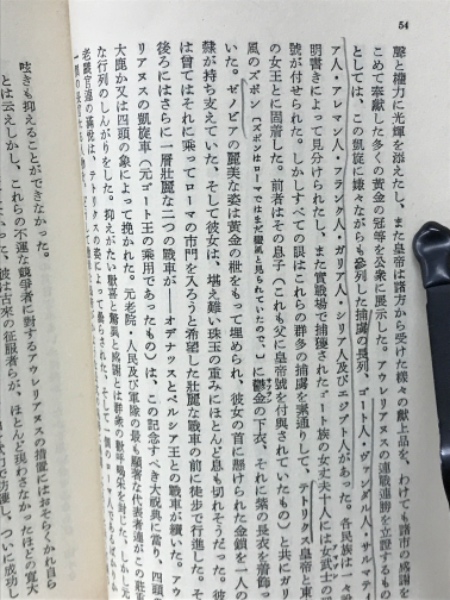 54
聲と權力に光輝を添えたし、また皇帝は諸方から受けた樣々の獻上品を、わけても諸市の感謝を
こめて奉獻した多くの黃金の冠等を公衆に展示した。アウレリアヌスの連戰連勝を立證するもの
としては、この凱旋に嫌々ながらも參列した捕虜の長列、ゴート人・ヴァンダル人・サルマテイ
ア人・アレマン人・フランク人・ガリア人・シリア人及びエジプト人があった。各民族は一々
明書きによって見分けられたし、また實戰場で捕獲されたゴート族の女丈夫十人には女武士の
號が付せられた。しかしすべての眼はこれらの群多の捕虜を素通りして、テトリクス皇帝と東
の女王とに固着した。前者はその息子(これも父に皇帝號を付與されていたもの)と共にガリ
風のズボン〔ズボンはローマではまだ蠻風と見られていたので。〕に鬱金の下衣、それに紫の長衣を着飾っ
いた。ゼノビアの麗美な姿は黃金の枷をもって埋められ、彼女の首に懸けられた金鎖を一人の
隸が持ち支えていた、そして彼女は、堪え難い珠玉の重みにほとんど息も切れそうだった。
は曾てはそれに乘ってローマの市門を入ろうと希望した壯麗な戰車の前に徒步で行進した。そ
後ろにはさらに一層壯麗な二つの戰車が——オデナッスとペルシア王との戰車が續いた。アウ
リアヌスの凱旋車(元ゴート王の乘用であったもの)は、この記念すべき大祝典に當り、四頭の
大鹿か又は四頭の象によって挽かれた。元老院・人民及び軍隊の最も顯著な代表者連がこの莊
な行列のしんがりをした。抑えがたい歡喜と驚異と感謝とは群衆の歡呼喝采を封じた。しかし元
老議官連の滿悅は、テトリクスの姿によって曇らされた、そして一個のローマ人で
呟きも抑えることができなかった。
とは云えしかし、これらの不運な競爭者に對するアウレリアヌスの措置にはおそらくかれ自ら
彼は古來の征服者らが、ほとんど現わさなかったほどの寬大
ついに成功し